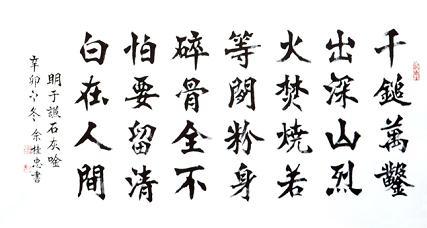 千鎚萬鑿
出深山烈
火焚燒若
等閒粉身
碎骨全不
怕要留清
白在人間
明于謙石灰唫
辛卯之冬余桂忠書